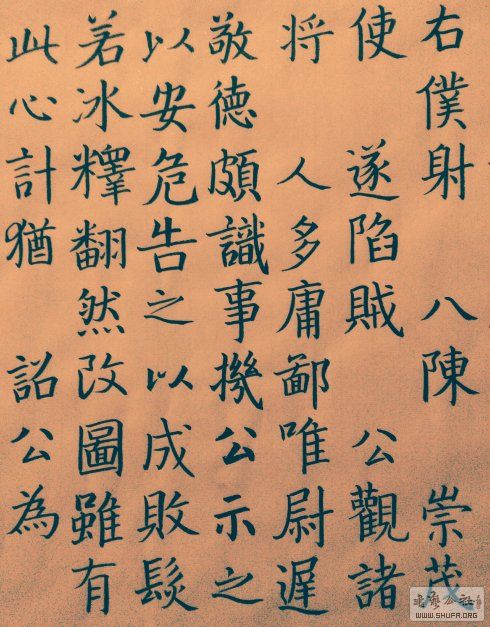 右僕射 八陳 崇茂
使 遂陷賊 公觀諸
将 人多庸鄙唯尉遲
敬德 頗識事機公示之
以安危告之 以成敗
若冰釋翻然改圖雖有
此心計猶 詔公為
WWW.SHUFA.ORG